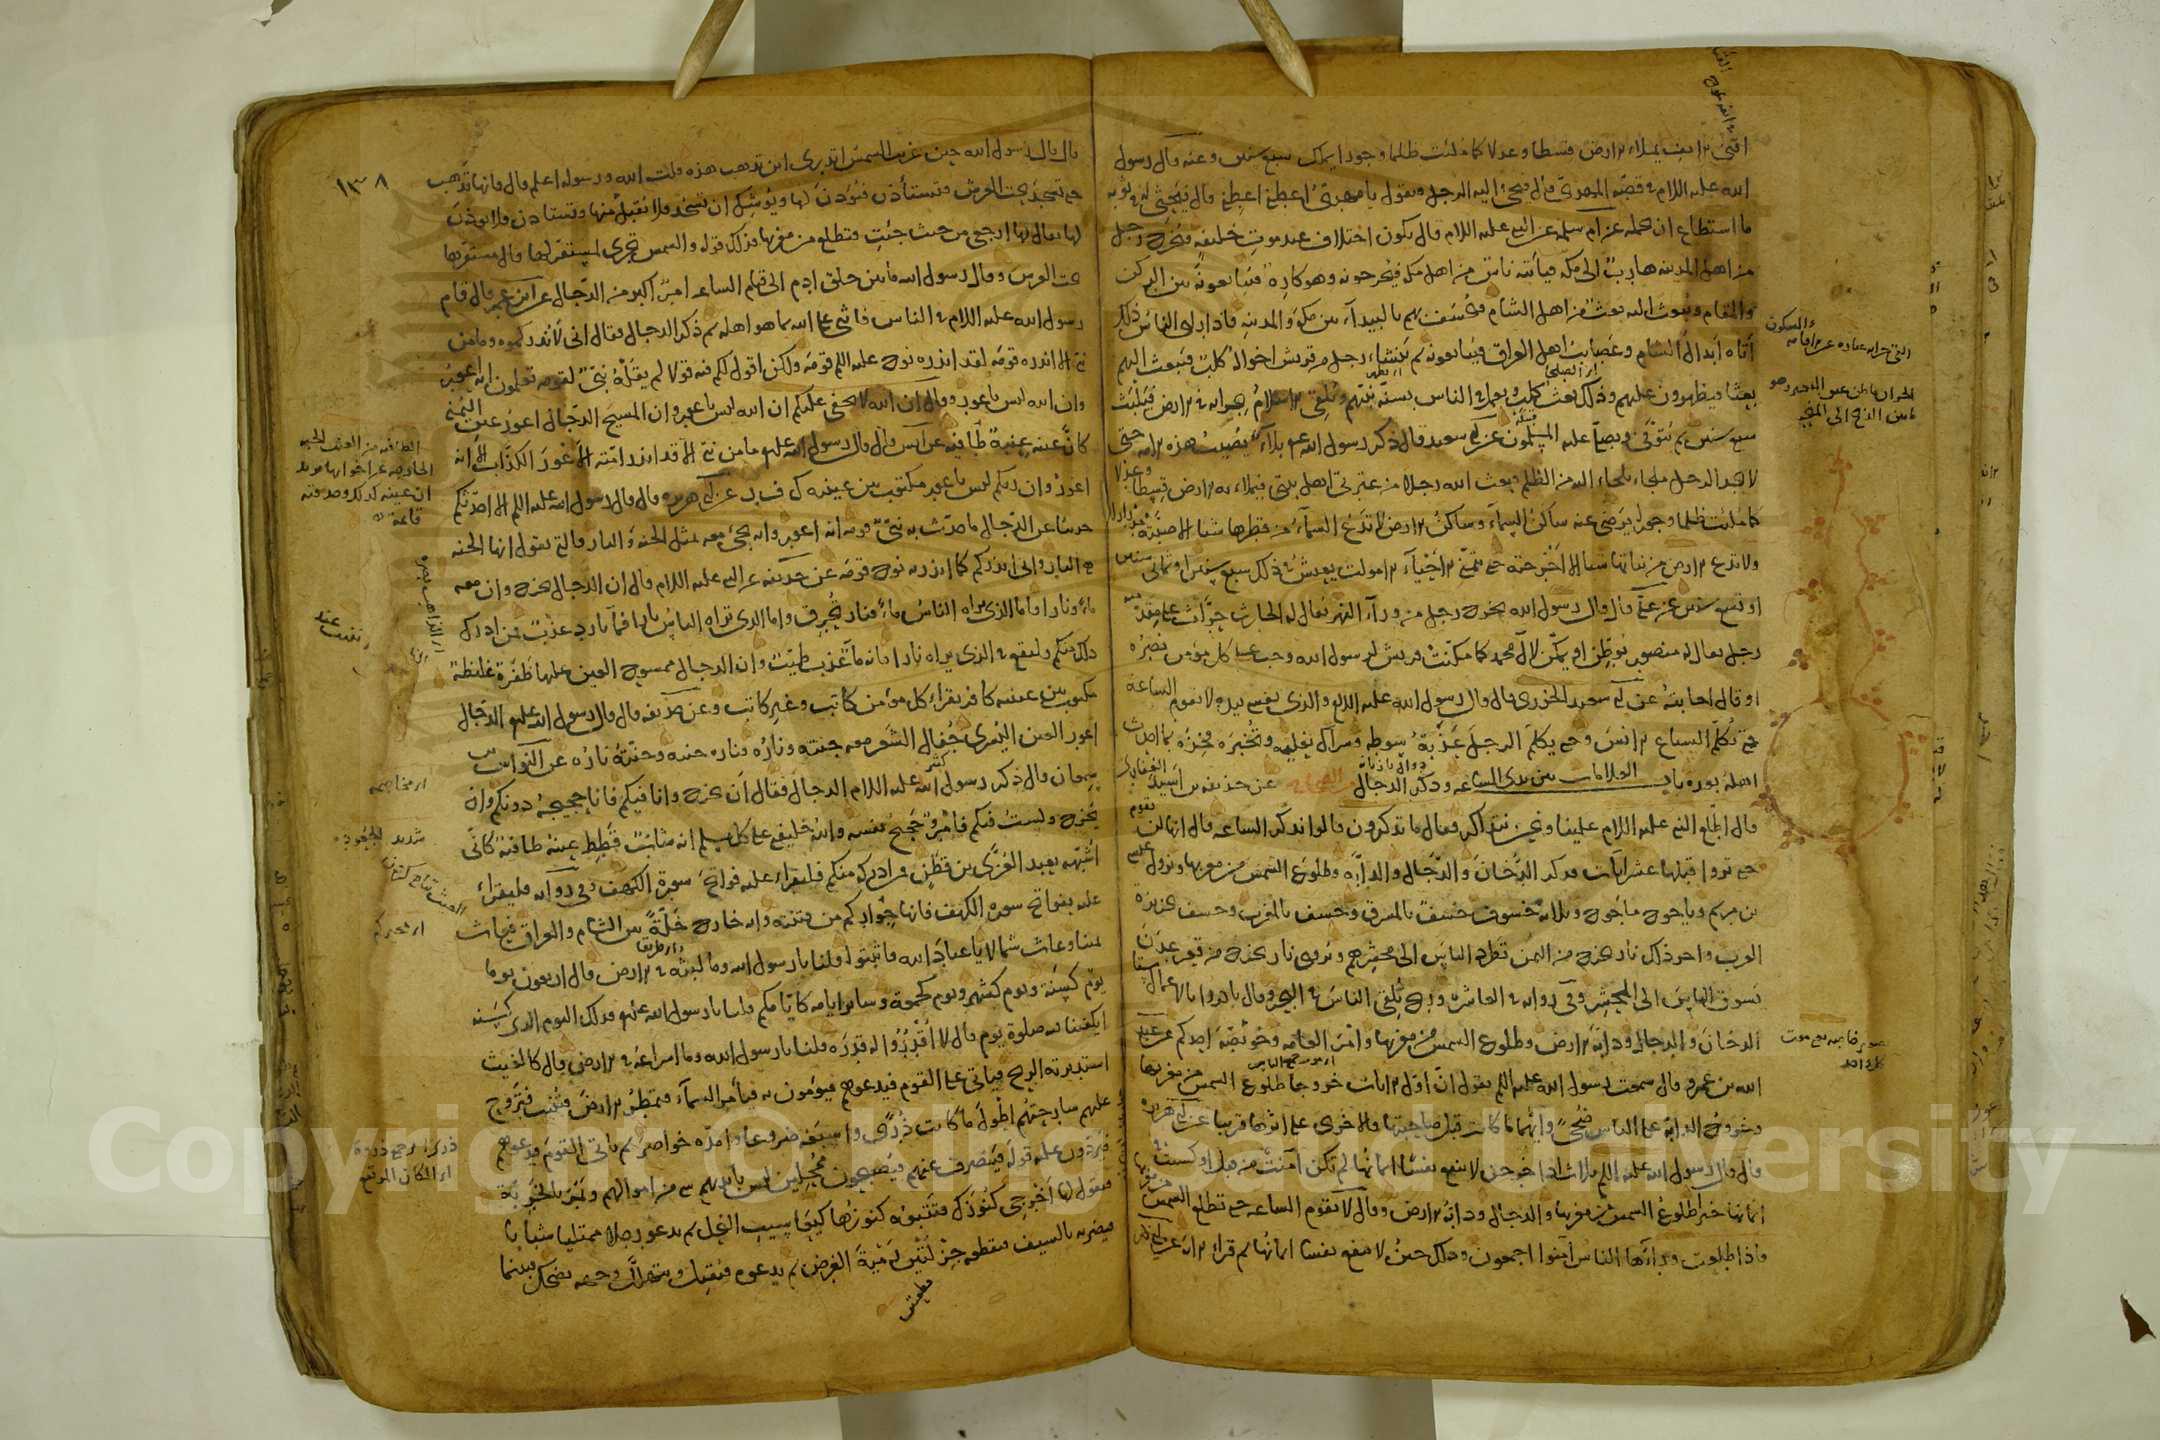 اقنى الانف يملاء الارض قسطا وعدلا كما ملئت ظلما وجورا يملك سبع سنين وعنه قال رسول
الله عليه السلام في قصة المهدى قال فيجئ اليه الرجل فيقول يا مهدى اعطنى اعطنى قال فيحثى له في ثوبه
ما استطاع ان يحمله عن ام سلمة عن النبى عليه السلام قال يكون اختلاف عند موت خليفة فيخرج رجل
من اهل المدينة هاربا الى مكة فيأتيه ناس من اهل مكة فيخرجونه وهو كاره فيبايعونه بين الركن
والمقام ويبعث اليه بعث من اهل الشام فيخسف بهم بالبيدآء بين مكة والمدينة فاذا راى الناس ذلك
أتاه أبدال الشام وعصائب اهل العراق فيبايعونه ثم ينشاء رجل من قريش اخواله كلب فيبعث اليهم
بعثا فيظهرون عليهم وذلك بعث كلب ويعمل في الناس بسنة نبيهم ويلقى الاسلام بجرانه في الارض فيلبث
سبع سنين ثم يتوفى ويصلى عليه المسلمون عن ابى سعيد قال ذكر رسول الله بلآء يصيب هذه الامة حتى
لا يجد الرجل ملجاء يلجاء اليه من الظلم فيبعث الله رجلا من عترتى اهل بيتى فيملاء به الارض قسطا وعدلا
كما ملئت ظلما وجورا يرضى عنه ساكن السمآء وساكن الارض لا تدع السمآء من قطرها شيئا الا صبته مدرارا
ولا تدع الارض من نباتها شيئا الا اخرجته حتى يتمنى الاحيآء الاموات يعيش في ذلك سبع سنين او ثمانى سنين
او تسع سنين عن على قال قال رسول الله يخرج رجل من ورآء النهر يقال له الحارث حراث على مقدمته
رجل يقال له منصور يوطن او يمكن لآل محمد كما مكنت قريش لرسول الله وجب على كل مؤمن نصره
او قال اجابته عن ابى سعيد الخدرى قال قال رسول الله عليه السلام والذى نفسى بيده لا تقوم الساعة
حتى تكلم السباع الانس وحتى يكلم الرجل عذبة سوطه وشراك نعليه وتخبره فخذه بما احدث
اهله بعده باب العلامات بين يدى الساعة وذكر الدجال الصحاح عن حذيفة بن اسيد الغفارى
قال اطلع النبى عليه السلام علينا ونحن نتذاكر فقال ما تذكرون قالوا نذكر الساعة قال انها لن تقوم
حتى تروا قبلها عشر ايات فذكر الدخان والدجال والدابة وطلوع الشمس من مغربها ونزول عيسى
بن مريم وياجوج وماجوج وثلاثة خسوف خسف بالمشرق وخسف بالمغرب وخسف بجزيرة
العرب واخر ذلك نار تخرج من اليمن تطرد الناس الى محشرهم ويروى نار تخرج من قعر عدن
تسوق الناس الى المحشر وفى رواية في العاشرة وريح تلقى الناس في البحر وقال بادروا بالاعمال ستا
الدخان والدجال ودابة الارض وطلوع الشمس من مغربها وامر العامة وخويصة احدكم عن عبد
الله بن عمرو قال سمعت رسول الله عليه السلم يقول ان اول الايات خروجا طلوع الشمس من مغربها
وخروج الدابة على الناس ضحى وايهما ما كانت قبل صاحبتها فالاخرى على اثرها قريبا عن ابى هريرة
قال قال رسول الله عليه السلم ثلاث اذا خرجن لا ينفع نفسا ايمانها لم تكن آمنت من قبل او كسبت في
ايمانها خيرا طلوع الشمس من مغربها والدجال ودابة الارض وقال لا تقوم الساعة حتى تطلع الشمس من مغربها
فاذا طلعت ورآها الناس آمنوا اجمعون وذلك حين لا ينفع نفسا ايمانها ثم قراء الاية عن ابى ذر
١٣٨
قال قال رسول الله حين غربت الشمس اتدرى اين تذهب هذه قلت الله ورسوله اعلم قال فانها تذهب
حتى تسجد تحت العرش فتستأذن فيؤذن لها ويوشك ان تسجد فلا تقبل منها وتستاذن فلا يوذن
لها يقال لها ارجعى من حيث جئت فتطلع من مغربها فذلك قوله والشمس تجرى لمستقر لها قال مستقرها
تحت العرش وقال رسول الله ما بين خلق ادم الى قيام الساعة امر اكبر من الدجال عن ابن عمر قال قام
رسول الله عليه السلام في الناس فاثنى على الله بما هو اهله ثم ذكر الدجال فقال انى لأنذركموه وما من
نبى الا انذره قومه لقد انذره نوح عليه السلم قومه ولكن اقول لكم فيه قولا لم يقله نبى لقومه تعلمون انه اعور
وان الله ليس باعور وقال ان الله لا يخفى عليكم ان الله ليس باعور وان المسيح الدجال اعور عين اليمنى
كان عينه عنبة طافية عن انس قال قال رسول الله عليه السلم ما من نبى الا قد انذر امته الاعور الكذاب الا انه
اعور وان ربكم ليس باعور مكتوب بين عينيه ك ف ر عن ابى هريرة قال قال رسول الله عليه السلم الا احدثكم
حديثا عن الدجال ما حدث به نبى قومه انه اعور وانه يجئ معه بمثل الجنة والنار فالتى يقول انها الجنة
هى النار وانى انذركم كما انذر به نوح قومه عن حذيفة عن النبى عليه السلام قال ان الدجال يخرج وان معه
ماء ونارا فاما الذى يراه الناس ماء فنار تحرق واما الذى يراه الناس نارا فمآء بارد عذب فمن ادرك
ذلك منكم فليقع في الذى يراه نارا فانه مآء عذب طيب وان الدجال ممسوح العين عليها ظفرة غليظة
مكتوب بين عينيه كافر يقراء كل مؤمن كاتب وغير كاتب وعن حذيفة قال قال رسول الله عليه السلم الدجال
اعور العين اليسرى جفال الشعر معه جنته وناره فناره جنة وجنته ناره عن النواس بن
سمعان قال ذكر رسول الله عليه السلام الدجال فقال ان يخرج وانا فيكم فانا حجيجه دونكم وان
يخرج ولست فيكم فامرؤ حجيج نفسه والله خليفتى على كل مسلم انه شاب قطط عينه طافئة كانى
اشبهه بعبد العزى بن قطن فمن ادركه منكم فليقراء عليه فواتح سورة الكهف وفى رواية فليقراء
عليه بفواتح سورة الكهف فانها جواركم من فتنته وانه خارج خلة بين الشام والعراق فعاث
يمينا وعاث شمالا يا عباد الله فاثبتوا قلنا يا رسول الله وما لبثه في الارض قال اربعون يوما
يوم كسنة ويوم كشهر ويوم كجمعة وسائر ايامه كايامكم قلنا يا رسول الله فذلك اليوم الذى كسنة
ايكفينا فيه صلوة يوم قال لا اقدروا له قدره قلنا يا رسول الله وما اسراعه في الارض قال كالغيث
استدبرته الريح فياتى على القوم فيدعوهم فيؤمنون به فيأمر السمآء فتمطر والارض فتنبت فتروح
عليهم سارحتهم اطول ما كانت ذرى واسبغه ضروعا وامده خواصر ثم ياتى القوم فيدعوهم
فيردون عليه قوله فينصرف عنهم فيصبحون ممحلين ليس بايديهم شئ من اموالهم ويمر بالخربة
فيقول لها اخرجى كنوزك فتتبعه كنوزها كيعاسيب النحل ثم يدعو رجلا ممتليا شبابا
فيضربه بالسيف فيقطعه جزلتين رمية الغرض ثم يدعوه فيقبل ويتهلل وجهه يضحك فبينما